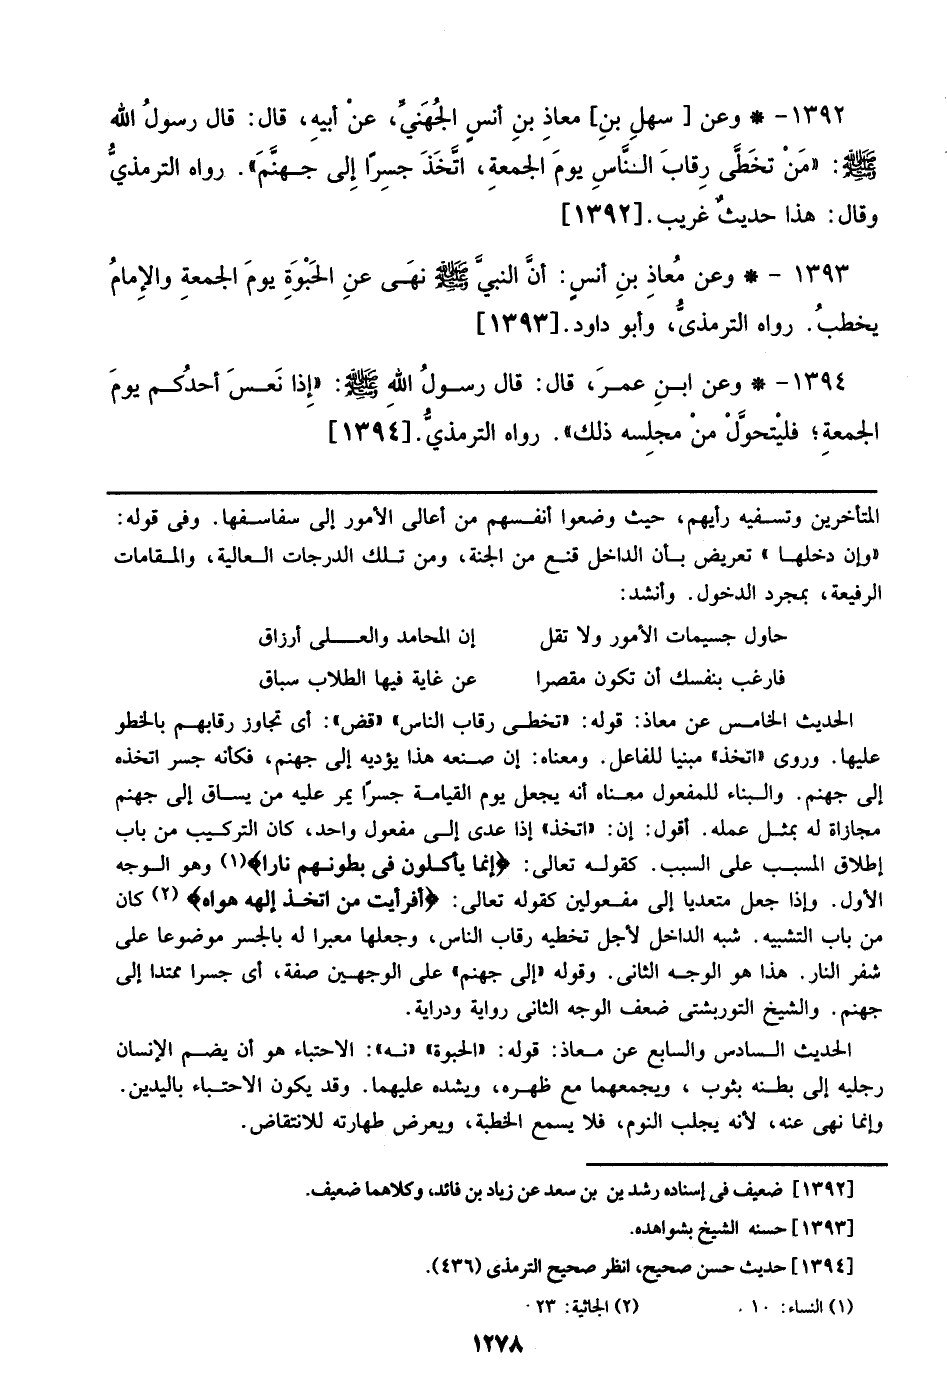 ١٣٩٢- * وعن [ سهلِ بنِ] معاذِ بنِ أنسٍ الجُهَنيِّ، عنْ أبيهِ، قال: قال رسولُ اللهِ
ﷺ: «مَنْ تخطَّى رِقابَ النَّاسِ يومَ الجمعةِ، اتَّخَذَ جسرًا إلى جهنَّمَ». رواه الترمذيُّ
وقال: هذا حديثٌ غريب.[١٣٩٢]
١٣٩٣ - * وعن مُعاذِ بنِ أنسٍ: أنَّ النبيَّ ﷺ نهَى عنِ الحَبْوَةِ يومَ الجمعةِ والإِمامُ
يخطبُ. رواه الترمذىُّ، وأبو داود.[١٣٩٣]
١٣٩٤- * وعن ابنِ عمرَ، قال: قال رسولُ اللهِ ﷺ: «إِذا نَعسَ أحدُكم يومَ
الجمعةِ؛ فليْتحوَّلْ منْ مجلِسه ذلك». رواه الترمذيُّ.[١٣٩٤]
المتأخرين وتسفيه رأيهم، حيث وضعوا أنفسهم من أعالى الأمور إلى سفاسفها. وفى قوله:
«وإن دخلها » تعريض بأن الداخل قنع من الجنة، ومن تلك الدرجات العالية، والمقامات
الرفيعة، بمجرد الدخول. وأنشد:
حاول جسيمات الأمور ولا تقل إن المحامد والعلى أرزاق
فارغب بنفسك أن تكون مقصرا عن غاية فيها الطلاب سباق
الحديث الخامس عن معاذ: قوله: «تخطى رقاب الناس» «قض»: أى تجاوز رقابهم بالخطو
عليها. وروى «اتخذ» مبنيا للفاعل. ومعناه: إن صنعه هذا يؤديه إلى جهنم، فكأنه جسر اتخذه
إلى جهنم. والبناء للمفعول معناه أنه يجعل يوم القيامة جسرًا يمر عليه من يساق إلى جهنم
مجازاة له بمثل عمله. أقول: إن: «اتخذ» إذا عدى إلى مفعول واحد، كان التركيب من باب
إطلاق المسبب على السبب. كقوله تعالى: ﴿إنما يأكلون فى بطونهم نارا﴾(١) وهو الوجه
الأول. وإذا جعل متعديا إلى مفعولين كقوله تعالى: ﴿أفرأيت من اتخذ إلهه هواه﴾ (٢) كان
من باب التشبيه. شبه الداخل لأجل تخطيه رقاب الناس، وجعلها معبرا له بالجسر موضوعا على
شفر النار. هذا هو الوجه الثانى. وقوله «إلى جهنم» على الوجهين صفة، أى جسرا ممتدا إلى
جهنم. والشيخ التوربشتى ضعف الوجه الثانى رواية ودراية.
الحديث السادس والسابع عن معاذ: قوله: «الحبوة» «نه»: الاحتباء هو أن يضم الإنسان
رجليه إلى بطنه بثوب ، ويجمعهما مع ظهره، ويشده عليهما. وقد يكون الاحتباء باليدين.
وإنما نهى عنه، لأنه يجلب النوم، فلا يسمع الخطبة، ويعرض طهارته للانتقاض.
[١٣٩٢] ضعيف فى إسناده رشدين بن سعد عن زياد بن فائد، وكلاهما ضعيف.
[١٣٩٣] حسنه الشيخ بشواهده.
[١٣٩٤] حديث حسن صحيح، انظر صحيح الترمذى (٤٣٦).
(١) النساء: ١٠ . (٢) الجاثية: ٢٣ .
١٢٧٨